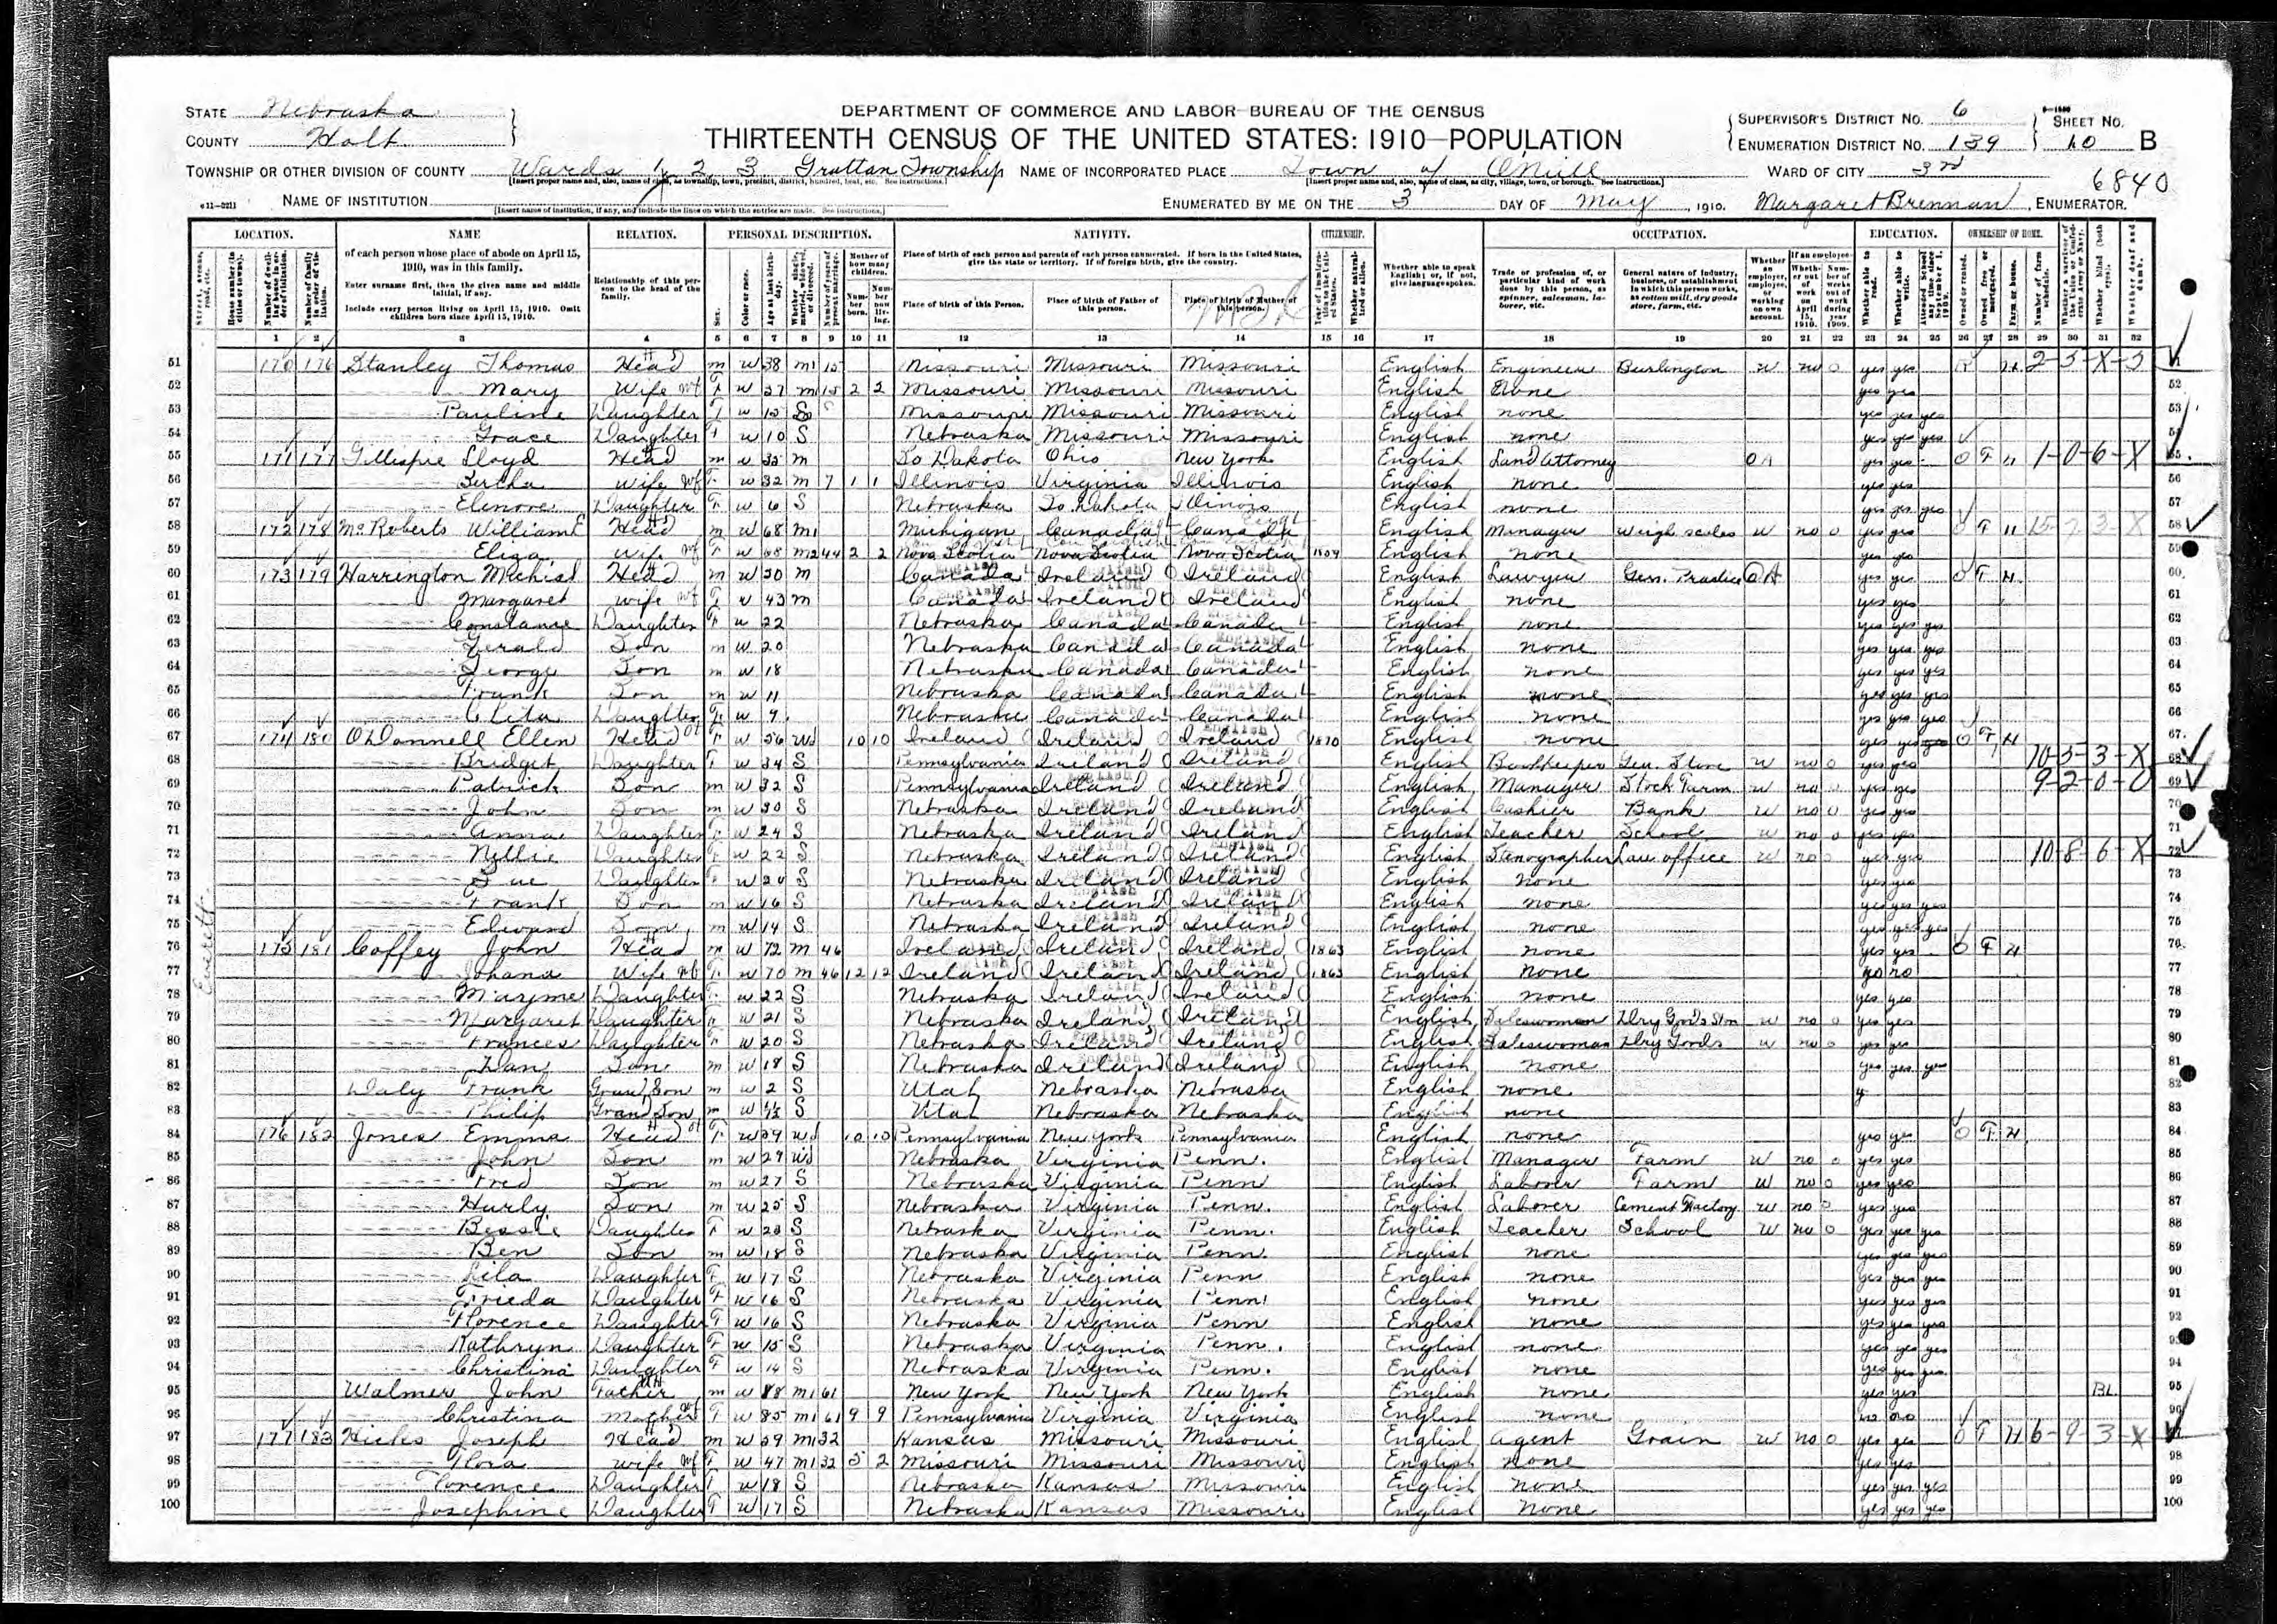 STATE Nebraska
COUNTY Holt
DEPARTMENT OF COMMERCE AND LABOR—BUREAU OF THE CENSUS
THIRTEENTH CENSUS OF THE UNITED STATES: 1910—POPULATION
SUPERVISOR'S DISTRICT No. 6
ENUMERATION DISTRICT No. 139
SHEET No. 10 B
TOWNSHIP OR OTHER DIVISION OF COUNTY Wards 1, 2, 3 Grattan Township NAME OF INCORPORATED PLACE Town of O'Neill WARD OF CITY 3rd
6840
NAME OF INSTITUTION ENUMERATED BY ME ON THE 3 DAY OF May, 1910. Margaret Brennan, ENUMERATOR.
LOCATION. NAME RELATION. PERSONAL DESCRIPTION. NATIVITY. CITIZENSHIP. OCCUPATION. EDUCATION. OWNERSHIP OF HOME.
of each person whose place of abode on April 15, 1910, was in this family.
Enter surname first, then the given name and middle initial, if any.
Include every person living on April 15, 1910. Omit children born since April 15, 1910.
Relationship of this person to the head of the family.
Place of birth of each person and parents of each person enumerated. If born in the United States, give the state or territory. If of foreign birth, give the country.
Place of birth of this Person. Place of birth of Father of this person. Place of birth of Mother of this person.
Whether able to speak English; or, if not, give language spoken.
Trade or profession of, or particular kind of work done by this person, as spinner, salesman, laborer, etc.
General nature of industry, business, or establishment in which this person works, as cotton mill, dry goods store, farm, etc.
1 2 3 4 5 6 7 8 9 10 11 12 13 14 15 16 17 18 19 20 21 22 23 24 25 26 27 28 29 30 31 32
51 170 176 Stanley Thomas Head m w 38 m1 15 Missouri Missouri Missouri English Engineer Burlington w no 0 yes yes R H 2-5-X-5
52 Mary Wife F w 37 m1 15 2 2 Missouri Missouri Missouri English None yes yes
53 Pauline Daughter F w 15 S Missouri Missouri Missouri English none yes yes yes
54 Grace Daughter F w 10 S Nebraska Missouri Missouri English none yes yes yes
55 171 177 Gillespie Lloyd Head m w 35 m So Dakota Ohio New York English Land Attorney OA yes yes O F H 1-0-6-X
56 Bertha Wife F w 32 m 7 1 1 Illinois Virginia Illinois English none yes yes
57 Elenore Daughter F w 6 S Nebraska So Dakota Illinois English none yes yes yes
58 172 178 McRoberts William E Head m w 68 m1 Michigan Canada Canada English Manager Weigh scales w no 0 yes yes O F H
59 Eliza Wife F w 68 m2 44 2 2 Nova Scotia Nova Scotia Nova Scotia English none yes yes
60 173 179 Harrington Michial Head m w 50 m Canada Ireland Ireland English Lawyer Gen. Practice OA yes yes O F H
61 Margaret Wife F w 43 m Canada Ireland Ireland English none yes yes
62 Constance Daughter F w 22 Nebraska Canada Canada English none yes yes yes
63 Gerald Son m w 20 Nebraska Canada Canada English none yes yes yes
64 George Son m w 18 Nebraska Canada Canada English none yes yes yes
65 Frank Son m w 11 Nebraska Canada Canada English none yes yes yes
66 Daughter F w 9 Nebraska Canada Canada English none yes yes yes
67 174 180 O'Donnell Ellen Head F w 56 wd 10 10 Ireland Ireland Ireland 1870 English none yes yes O F H
68 Bridget Daughter F w 34 S Pennsylvania Ireland Ireland English Bookkeeper Gen. Store w no 0 yes yes 10-5-3-X
69 Patrick Son m w 32 S Pennsylvania Ireland Ireland English Manager Stock Farm w no 0 yes yes 9-2-0-0
70 John Son m w 30 S Nebraska Ireland Ireland English Cashier Bank w no 0 yes yes
71 Anna Daughter F w 24 S Nebraska Ireland Ireland English Teacher School w no 0 yes yes
72 Nellie Daughter F w 22 S Nebraska Ireland Ireland English Stenographer Law office w no 0 yes yes 10-8-6-X
73 Sue Daughter F w 20 S Nebraska Ireland Ireland English none yes yes
74 Frank Son m w 16 S Nebraska Ireland Ireland English none yes yes yes
75 Edward Son m w 14 S Nebraska Ireland Ireland English none yes yes yes
Everett
76 175 181 Coffey John Head m w 72 m 46 Ireland Ireland Ireland 1863 English none yes yes O F H
77 Johana Wife F w 70 m 46 12 12 Ireland Ireland Ireland 1863 English none no no
78 Mayme Daughter F w 22 S Nebraska Ireland Ireland English none yes yes
79 Margaret Daughter F w 21 S Nebraska Ireland Ireland English Saleswoman Dry Goods Ston w no 0 yes yes
80 Frances Daughter F w 20 S Nebraska Ireland Ireland English Saleswoman Dry Goods w no 0 yes yes
81 Dan Son m w 18 S Nebraska Ireland Ireland English none yes yes yes
82 Daly Frank Grand Son m w 2 S Utah Nebraska Nebraska English none
83 Philip Grand Son m w S Utah Nebraska Nebraska English none
84 176 182 Jones Emma Head F w 59 wd 10 10 Pennsylvania New York Pennsylvania English none yes yes O F H
85 John Son m w 29 wd Nebraska Virginia Penn. English Manager Farm w no 0 yes yes
86 Fred Son m w 27 S Nebraska Virginia Penn English Laborer Farm w no 0 yes yes
87 Hurly Son m w 25 S Nebraska Virginia Penn. English Laborer Cement Factory w no 0 yes yes
88 Bessie Daughter F w 23 S Nebraska Virginia Penn. English Teacher School w no 0 yes yes yes
89 Ben Son m w 18 S Nebraska Virginia Penn. English none yes yes yes
90 Lila Daughter F w 17 S Nebraska Virginia Penn English none yes yes yes
91 Frieda Daughter F w 16 S Nebraska Virginia Penn English none yes yes yes
92 Florence Daughter F w 16 S Nebraska Virginia Penn English none yes yes yes
93 Kathryn Daughter F w 15 S Nebraska Virginia Penn. English none yes yes yes
94 Christina Daughter F w 14 S Nebraska Virginia Penn. English none yes yes yes
95 Walmer John Father m w 88 m1 61 New York New York New York English none yes yes BL
96 Christina Mother F w 85 m1 61 9 9 Pennsylvania Virginia Virginia English none no no
97 177 183 Hicks Joseph Head m w 59 m1 32 Kansas Missouri Missouri English Agent Grain w no 0 yes yes O F H 6-9-3-X
98 Flora Wife F w 47 m1 32 5 2 Missouri Missouri Missouri English none yes yes
99 Florence Daughter F w 18 S Nebraska Kansas Missouri English none yes yes yes
100 Josephine Daughter F w 17 S Nebraska Kansas Missouri English none yes yes yes